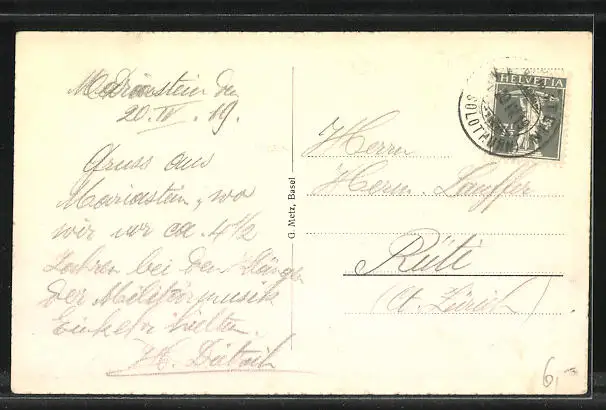 Mariastein den
20. IV. 19.
Gruss aus
Mariastein, wo
wir vor ca. 4 1/2
Jahren bei den Klängen
der Militärmusik
Einkehr hielten.
H. Dietrich
G. Metz, Basel
HELVETIA
7½
SOLOTHURN
Herrn
Herm. Lauffer
Rüti
(Ct. Zürich)
6,-